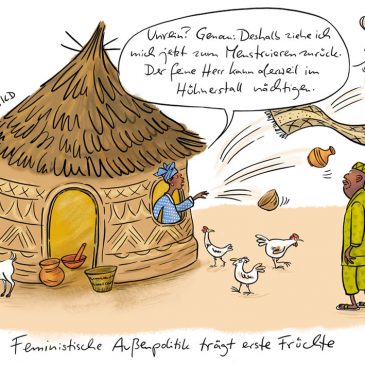 Unrein? Genau: Deshalb ziehe ich
mich jetzt zum Menstruieren zurück.
Der feine Herr kann derweil im
Hühnerstall nächtigen.
Feministische Außenpolitik trägt erste Früchte